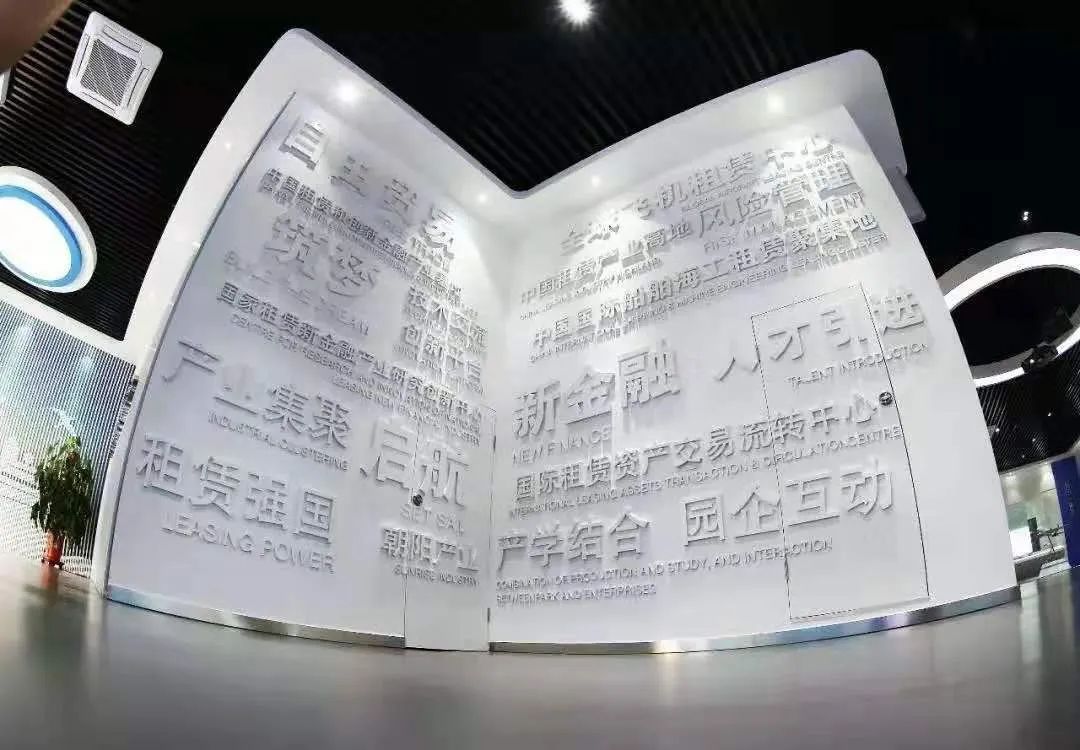 自主贸易
中国租赁和创新金融产业
筑梦
技术交流
创新平台
国家租赁新金融产业研究创新中心
CENTRE FOR RESEARCH AND INNOVATION OF
LEASING NEW FINANCIAL INDUSTRY
产业集聚
INDUSTRIAL CLUSTERING
启航
SET SAIL
租赁强国
LEASING POWER
朝阳产业
SUNRISE INDUSTRY
全球飞机租赁中心
中国租赁产业高地
风险管理
RISK MANAGEMENT
中国国际船舶海工租赁聚集地
新金融
NEW FINANCE
人才引进
TALENT INTRODUCTION
国际租赁资产交易流转中心
INTERNATIONAL LEASING ASSETS TRANSACTION & CIRCULATION CENTRE
产学结合 园企互动
COMBINATION OF PRODUCTION AND STUDY, AND INTERACTION
BETWEEN PARK AND ENTERPRISES